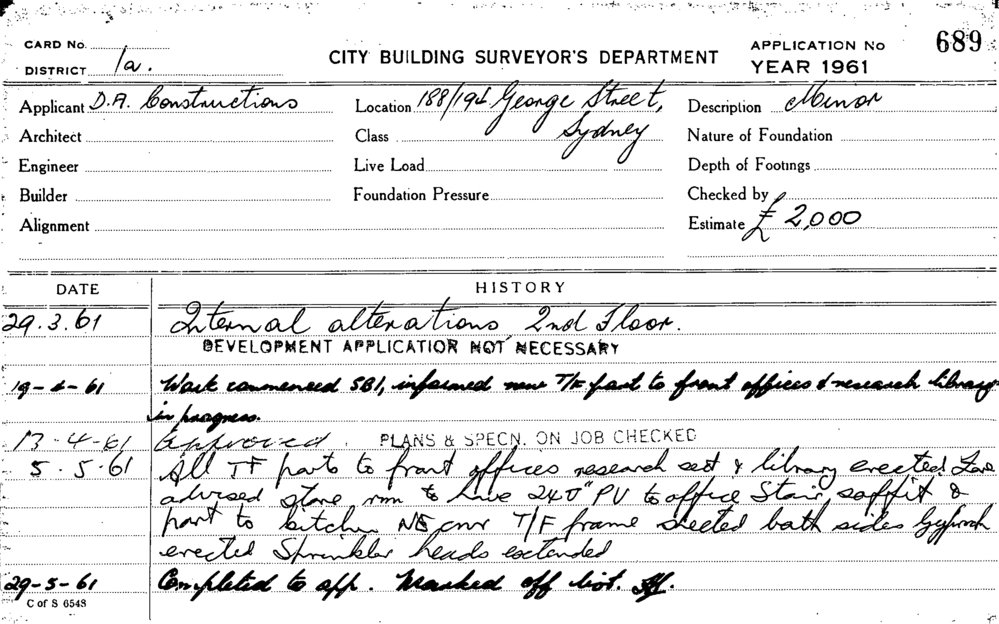 CARD No.
DISTRICT 1a.
CITY BUILDING SURVEYOR'S DEPARTMENT
APPLICATION No 689
YEAR 1961
Applicant D.A. Constructions
Location 188/194 George Street,
Sydney
Description Minor
Architect
Class
Nature of Foundation
Engineer
Live Load
Depth of Footings
Builder
Foundation Pressure
Checked by
Alignment
Estimate £ 2,000
DATE HISTORY
29.3.61 Internal alterations 2nd Floor.
DEVELOPMENT APPLICATION NOT NECESSARY
19-4-61 Work commenced SBI, informed new T/F part to front offices & research library
in progress.
13-4-61 Approved. PLANS & SPECN. ON JOB CHECKED
5.5.61 All TF parts to front offices research sect & library erected
advised store rm to have PV to office Stair soffit &
part to kitchen NE cnr T/F frame sheeted both sides
erected Sprinkler heads extended
29-5-61 Completed to app. Marked off list.
C of S 6548